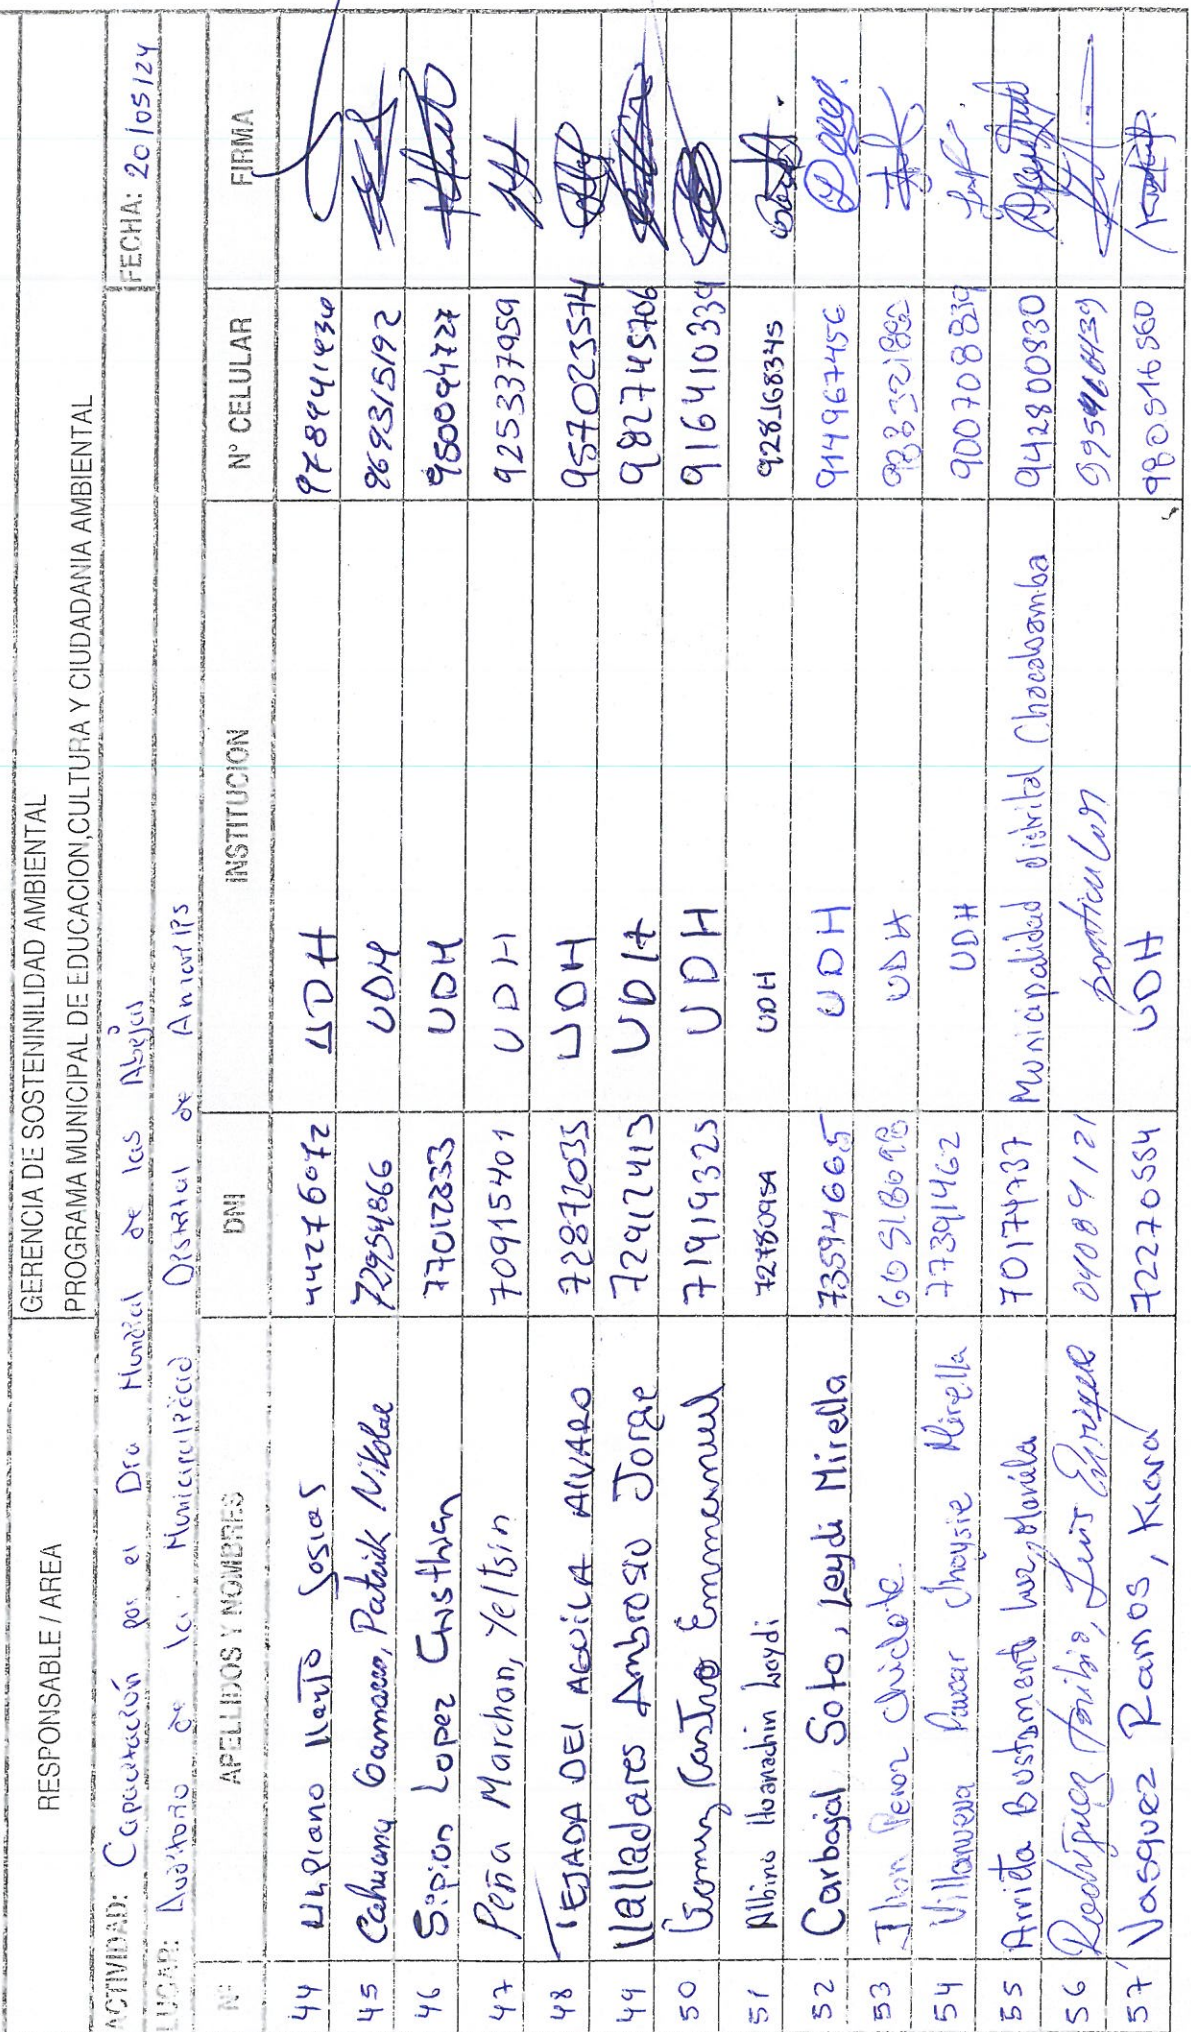 RESPONSABLE / AREA
GERENCIA DE SOSTENINILIDAD AMBIENTAL
PROGRAMA MUNICIPAL DE EDUCACION,CULTURA Y CIUDADANIA AMBIENTAL
ACTIVIDAD: Capacitación por el Dia Mundial de las Abejas FECHA: 20/05/24
LUGAR: Auditorio de la Municipalidad Distrital de Amarilis
N° APELLIDOS Y NOMBRES DNI INSTITUCION N° CELULAR FIRMA
44 Ulpiano Llanto Josias 44276072 UDH
45 Cahuana Gamarra, Patrick Nikolae 72954866 UDH 969315192
46 Sipion Lopez Cristhian 77012833 UDH
47 Peña Marchan, Yeltsin 70915401 UDH 925337959
48 TEJADA DEL AGUILA ALVARO 72872035 UDH 957023574
49 Valladares Ambrosio Jorge 72412413 UDH 982745706
50 Castro Emmanuel 71919325 UDH 916410334
51 Albino Huanachin Leydi 72780954 UDH 928168345
52 Carbajal Soto, Leydi Mirella 73594665 UDH 914967456
53 Jhon UDH
54 Villanueva Paucar Jhaysie Mirella 77391462 UDH 900708839
55 Arrieta Bustamente Luz Mariela 70174737 Municipalidad distrital Chacabamba 942800830
56 Rodríguez Toribio, Luis Enrique 04084121 particular
57 Vasquez Ramos, Kiara 72270554 UDH 980516560